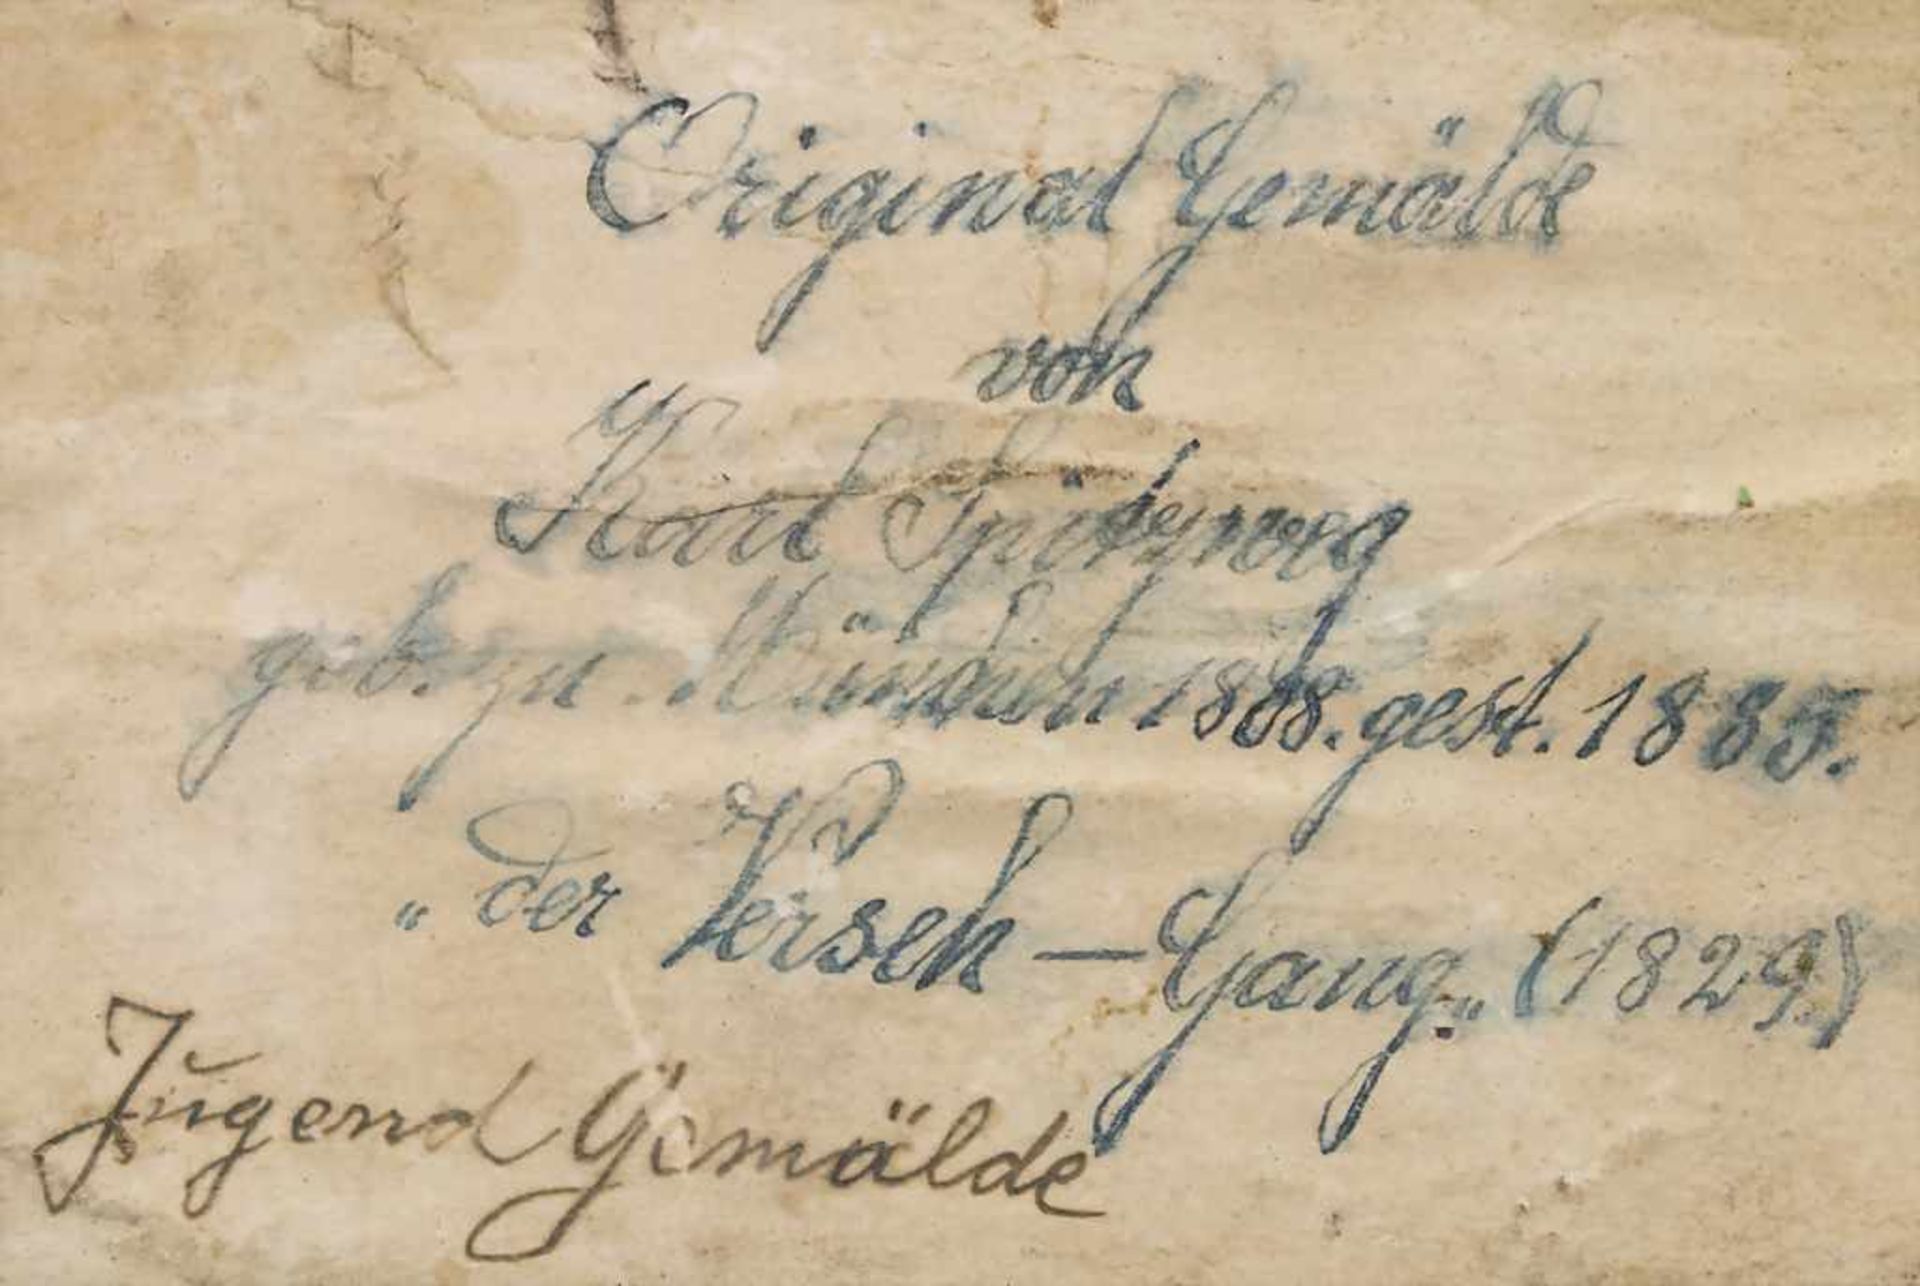 Original Gemälde
von
Karl Spitzweg
geb. zu München 1808. gest. 1885.
„der Verseh – Gang„ (1829.)
Jugend Gemälde